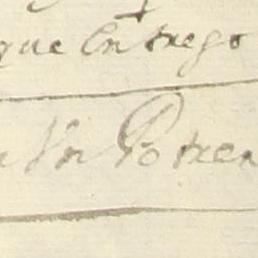 que Entrego
Vn Potren